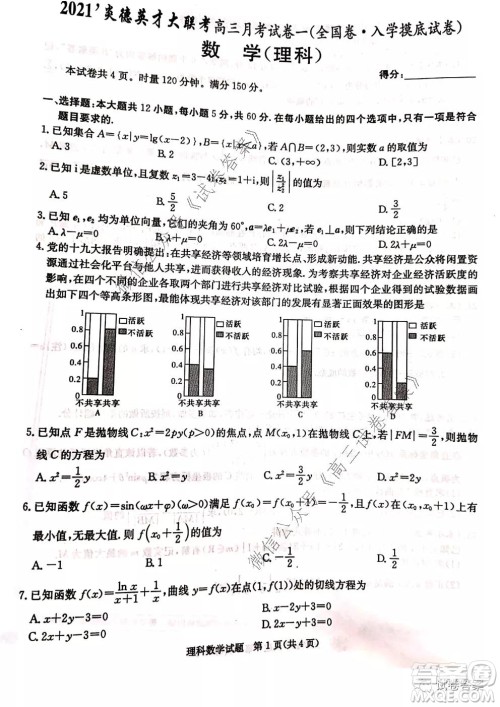 2021'炎德英才大联考高三月考试卷一(全国卷·入学摸底试卷)
数 学(理科)
得分:
本试卷共4页。时量120分钟。满分150分。
一、选择题:本大题共12小题,每小题5分,共60分。在每小题给出的四个选项中,只有一项是符合
题目要求的.
1. 已知集合A={x|y=lg(x-2)},B={x|x<a},若A∩B=(2,3),则实数a的取值为
A. 3 B. 2 C. (3,+∞) D. [2,3]
2. 已知i是虚数单位,且复数z₁=3-4i,z₂=1+i,则|z₁/z₂|的值为
A. 5 B. 5/2
4. 已知e₁,e₂均为单位向量,它们的夹角为60°,a=λe₁+μe₂,若a⊥
A. λ-μ=0 B. λ+μ=0
4. 党的十九大报告明确提出:在共享经济等领域培育增长点、形成新动能。共享经济是公众将闲置资
源通过社会化平台与他人共享,进而获得收入的经济现象。为考察共享经济对企业经济活跃度的
影响,在四个不同的企业各取两个部门进行共享经济对比试验,根据四个企业得到的试验数据画
出如下四个等高条形图,最能体现共享经济对该部门的发展有显著正面效果的图形是
活跃 不活跃 活跃 不活跃 活跃 不活跃 活跃 不活跃
1 0.8 0.6 0.4 0.2 0
不共享 共享 不共享 共享 不共享 共享 不共享 共享
A B C D
5. 已知点F是抛物线C:x²=2py(p>0)的焦点,点M(x₀,1)在抛物线C上,若|FM|=3/2,则抛物
线C的方程为
A. x²=1/2y B. x²=y C. x²=3/2y D. x²=2y
6. 已知函数f(x)=sin(ωx+φ)(ω>0)满足f(x₀)=f(x₀+1)=-1/2,且f(x)在(x₀,x₀+1)上有
最小值,无最大值,则f(x₀+1/2)的值为
A. -√3/2 B. -1 C. -1/2 D. 0
7. 已知函数f(x)=lnx/(x+1)+1/x,曲线y=f(x)在点(1,f(1))处的切线方程为
A. x+y-3=0 B. x+2y-3=0
C. 2x+y-3=0 D. 2x+2y-3=0
理科数学试题 第1页(共4页)
微信公众号《高三试卷
《试卷答案》
试卷答案